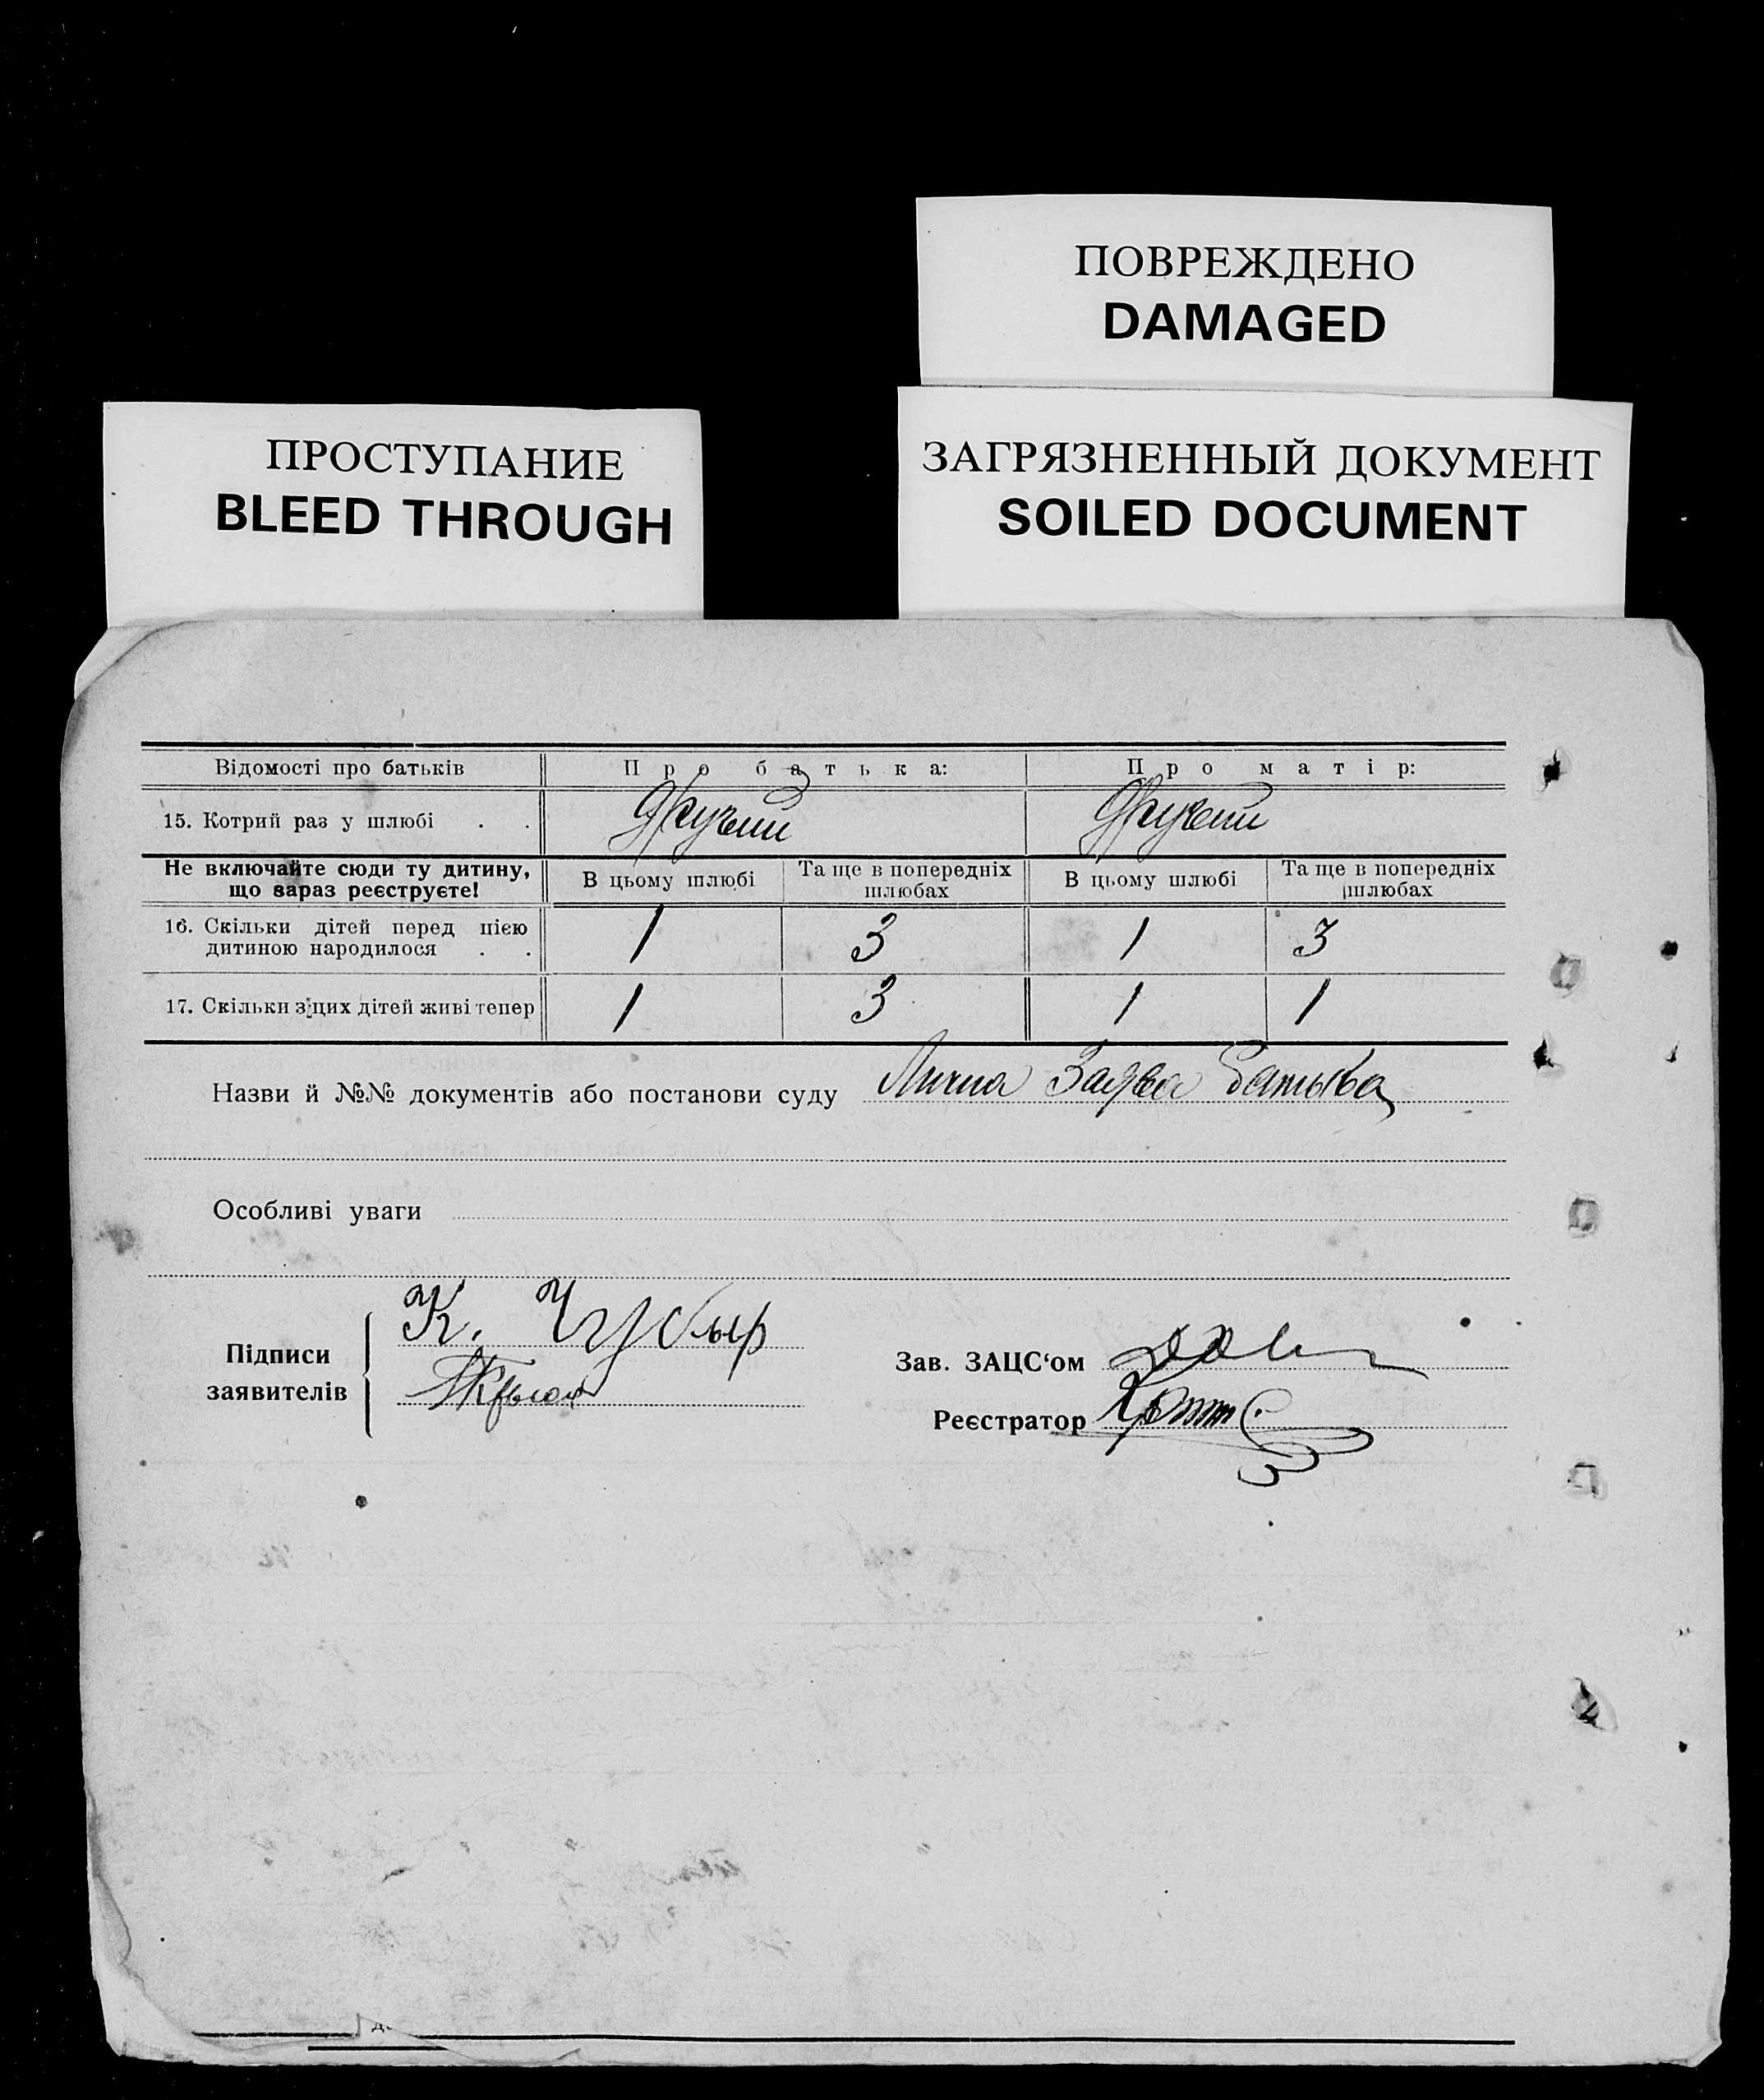 ПОВРЕЖДЕНО
DAMAGED
ПРОСТУПАНИЕ
BLEED THROUGH
ЗАГРЯЗНЕННЫЙ ДОКУМЕНТ
SOILED DOCUMENT
Відомості про батьків Про батька: Про матір:
15. Котрий раз у шлюбі . . Другий Другий
Не включайте сюди ту дитину, що зараз реєструєте! В цьому шлюбі Та ще в попередніх шлюбах В цьому шлюбі Та ще в попередніх шлюбах
16. Скільки дітей перед цією дитиною народилося . . 1 3 1 3
17. Скільки з цих дітей живі тепер 1 3 1 1
Назви й №№ документів або постанови суду Лична Заява Батька
Особливі уваги
Підписи заявителів
К.
Зав. ЗАЦС‘ом
Реєстратор